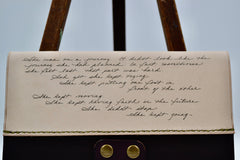 She was on a journey. It didn't look like the
journey she had planned. In fact sometimes
she felt lost. That part was hard.
And yet she kept trying.
She kept putting one foot in
front of the other.
She kept moving.
She kept having faith in the future.
She didn't stop.
She kept going.